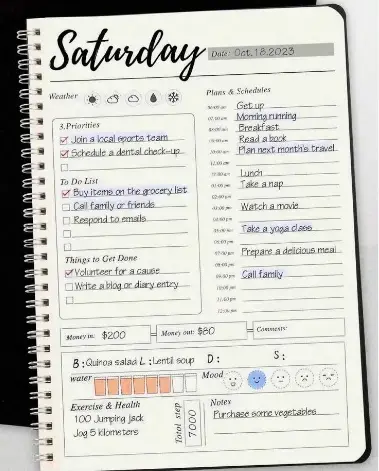 Saturday
Date: Oct.18.2023
Weather
3.Priorities
Join a local sports team
Schedule a dental check-up
To Do List
Buy items on the grocery list
Call family or friends
Respond to emails
Things to Get Done
Volunteer for a cause
Write a blog or diary entry
Plans & Schedules
06:00 am Get up
07:00 am Morning running
08:00 am Breakfast
09:00 am Read a book
10:00 am Plan next month's travel
11:00 am
Lunch
01:00 pm Take a nap
02:00 pm
03:00 pm Watch a movie
04:00 pm
05:00 pm Take a yoga class
06:00 pm
07:00 pm Prepare a delicious meal
08:00 pm
09:00 pm Call family
10:00 pm
11:00 pm
Money in: $200
Money out: $80
Comments:
B: Quinoa salad L: Lentil soup D: S:
water
Mood
Exercise & Health
100 Jumping jack
Jog 5 kilometers
Total step
7000
Notes
Purchase some vegetables